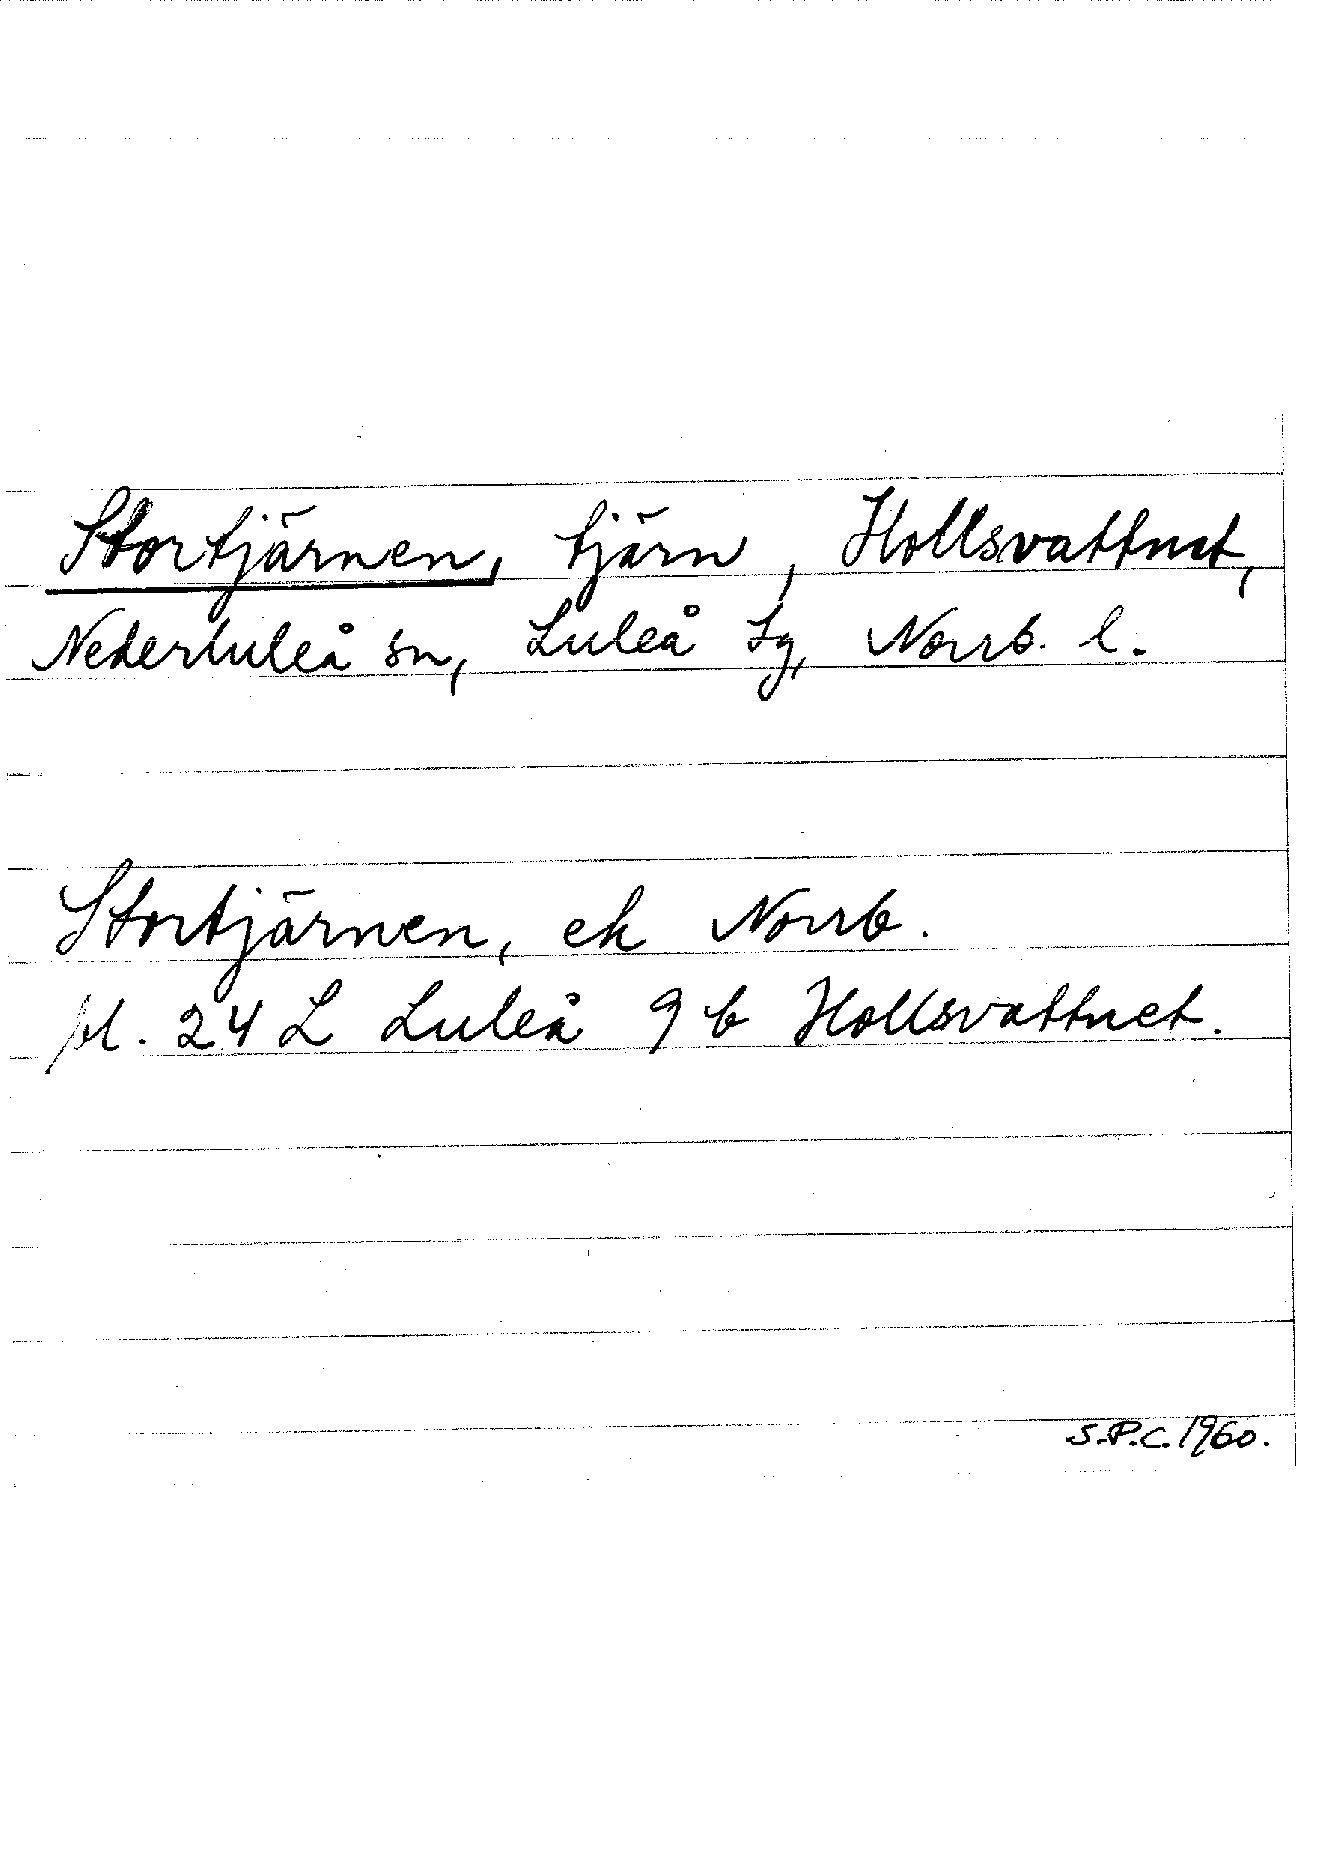 Stortjärnen, tjärn, Hollsvattnet,
Nederluleå sn, Luleå tg, Norrb. l.
Stortjärnen, ek Norrb.
bl. 24 L Luleå 9 b Hollsvattnet.
S.P.C. 1960.